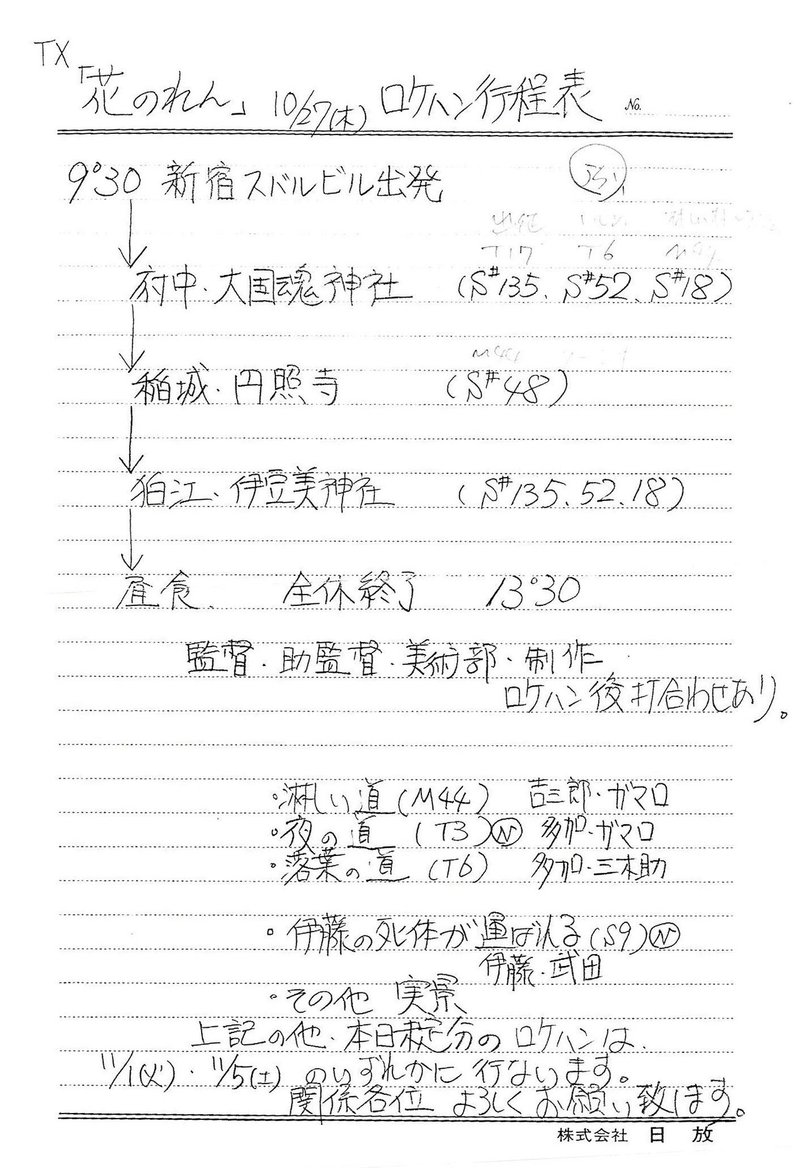 TX
「花のれん」 10/27(木) ロケハン行程表 No.
9°30 新宿スバルビル出発
T17 T6
府中・大国魂神社 (S#135、S#52、S#18)
M44
稲城・円照寺 (S#48)
狛江・伊豆美神社 (S#135、52、18)
昼食、 全体終了 13°30
監督・助監督・美術部・制作
ロケハン後打合わせあり。
・淋しい道(M44) 吉三郎・ガマロ
・夜の道 (T3)Ⓝ 多加・ガマロ
・落葉の道 (T6) 多加・三木助
・伊藤の死体が運ばれる(S9)Ⓝ
伊藤・武田
・その他 実景
上記の他・本日未定分のロケハンは、
11/1(火)・11/5(土) のいずれかに行ないます。
関係各位 よろしくお願い致します。
株式会社 日放